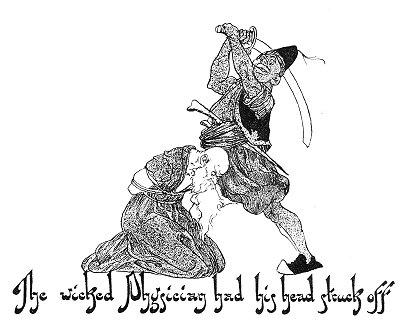 The wicked Physician had his head struck off